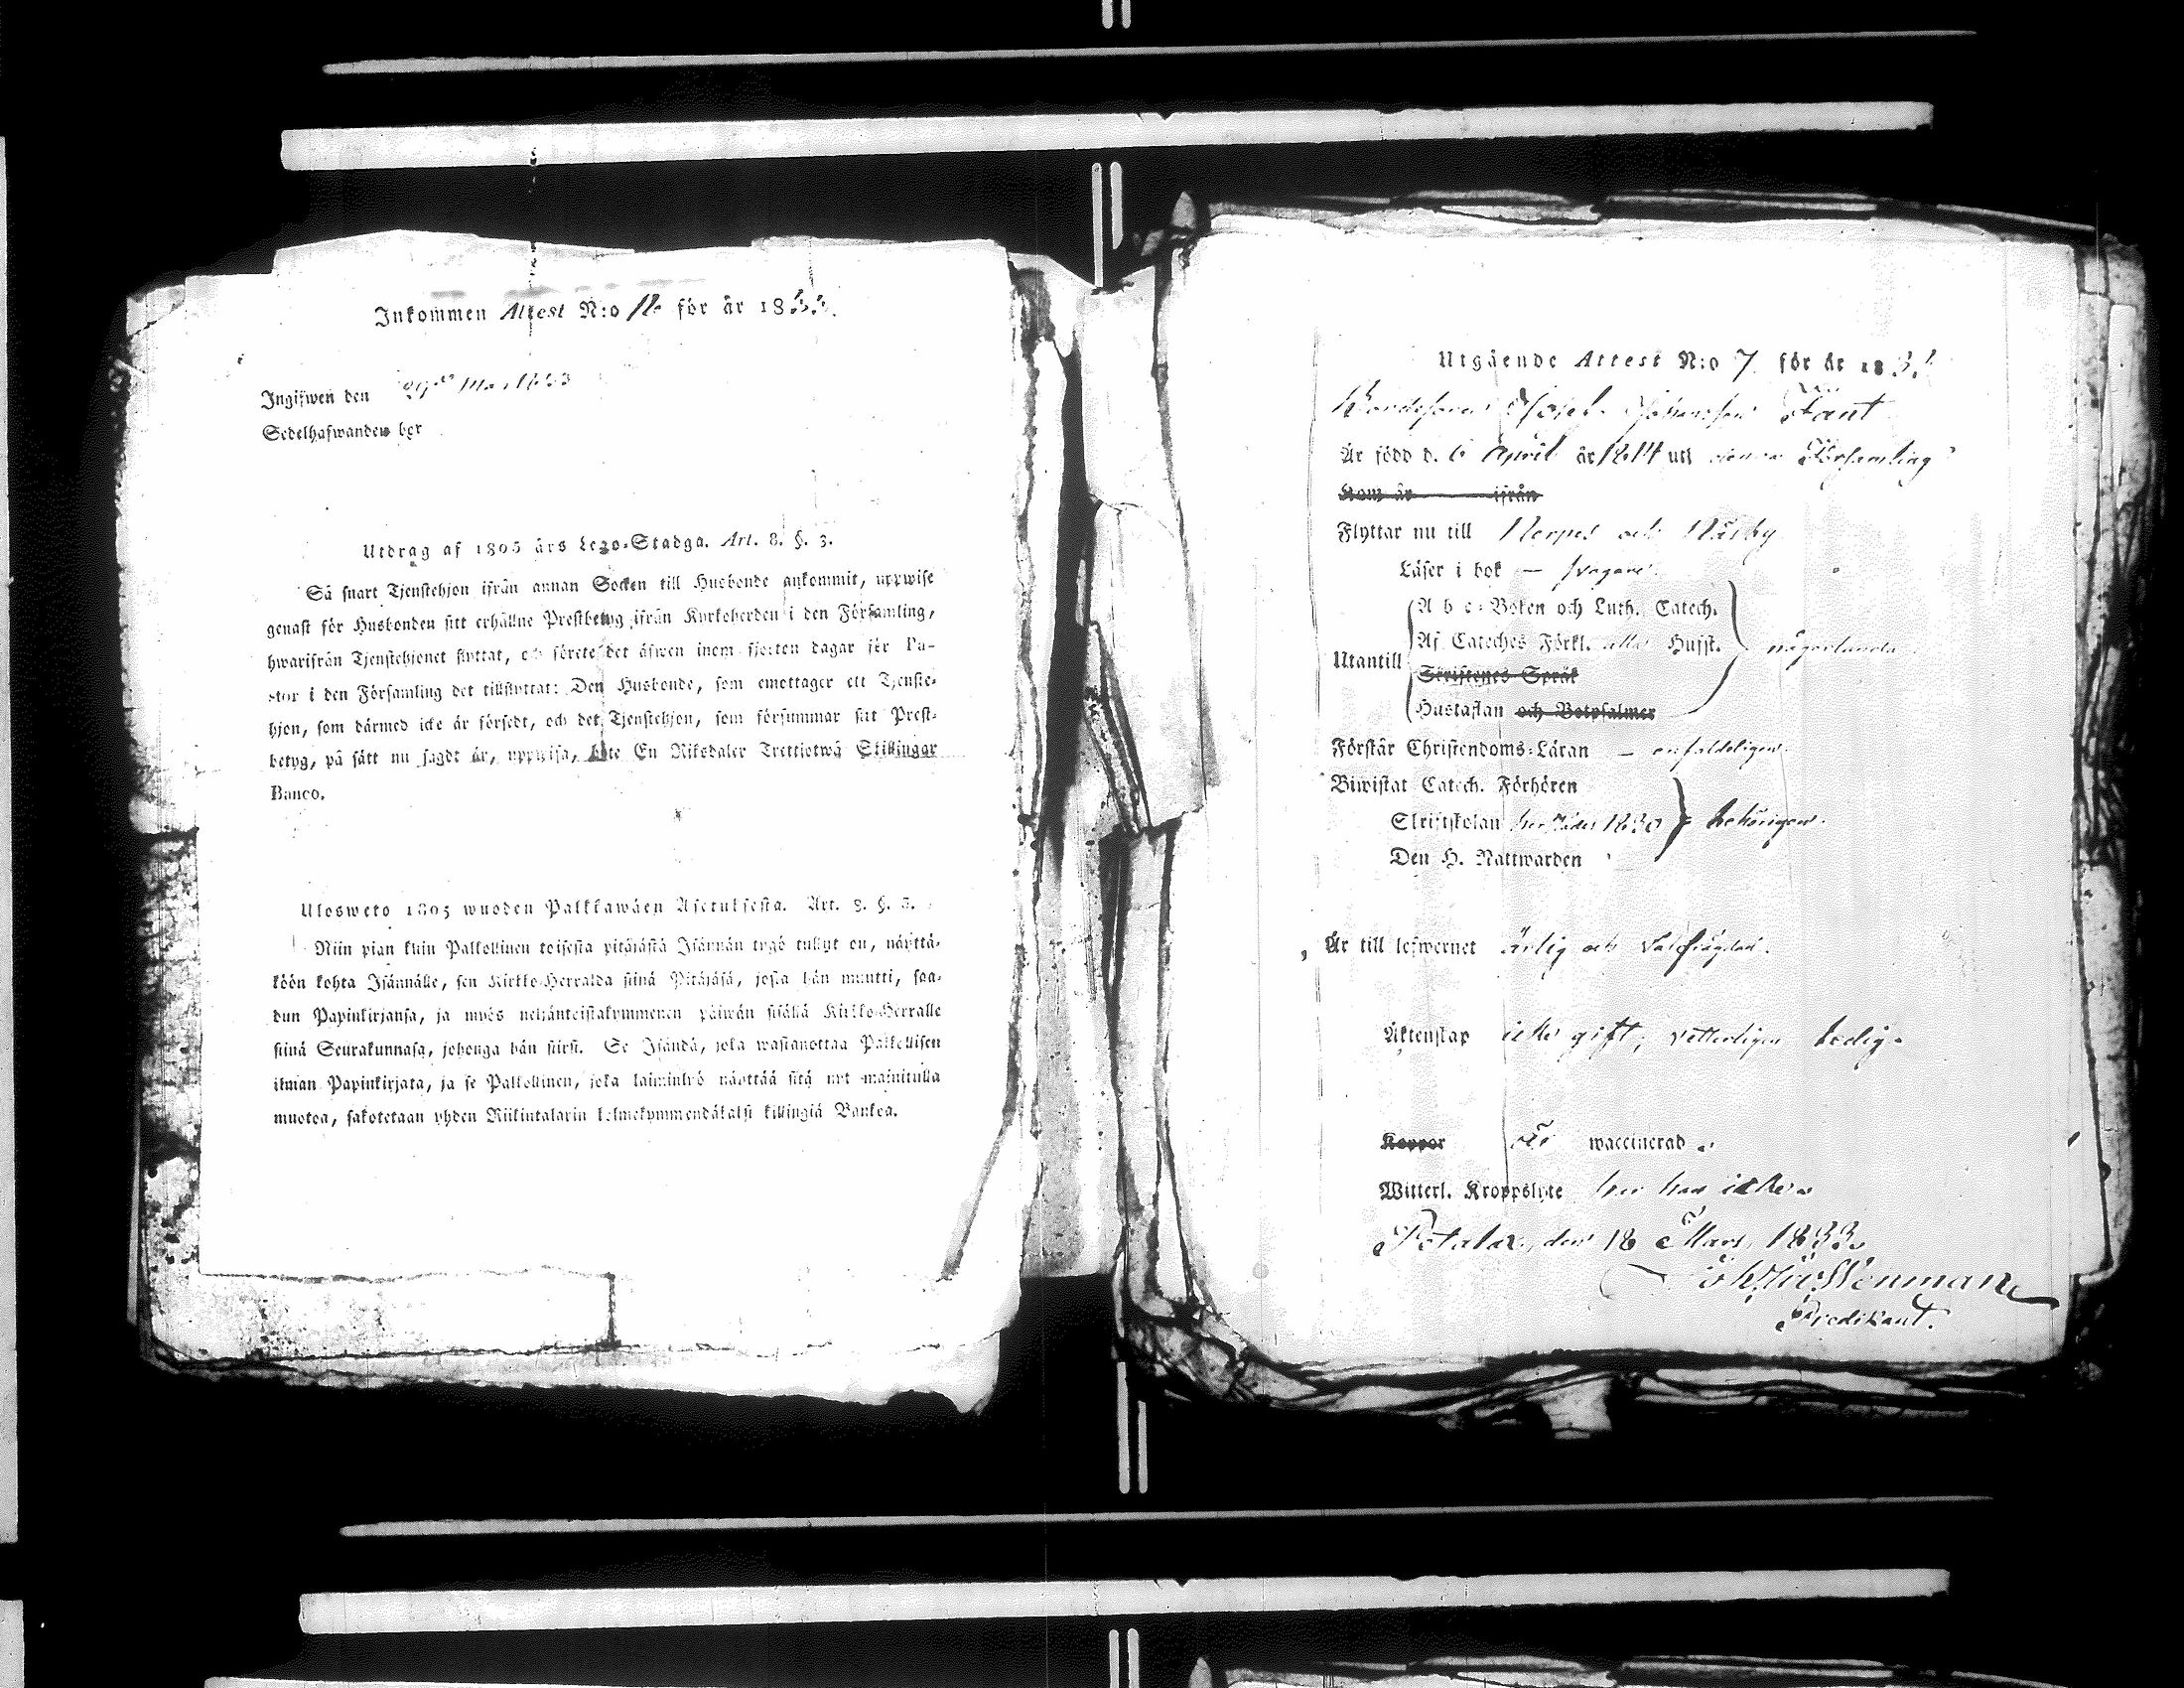 Inkommen Attest N:o 12 för år 1833.
Ingifwen den 29de Mars 1833
Sedelhafwanden bor
Utdrag af 1805 års Lego-Stadga. Art. 8. §. 3.
Så snart Tjenstehjon ifrån annan Socken till Husbonde ankommit, uppwise
genast för Husbonden sitt erhållne Prestbetyg ifrån Kyrkoherden i den Församling,
hwarifrån Tjenstehjonet flyttat, och förete det äfwen inom fjorton dagar för Pa-
stor i den Församling det tillflyttat: Den Husbonde, som emottager ett Tjenste-
hjon, som därmed icke är försedt, och det Tjenstehjon, som försummar sitt Prest-
betyg, på sätt nu sagdt är, uppwisa, böte En Riksdaler Trettiotwå Skillingar
Banco.
Ulosweto 1805 wuoden Palkkawäen Asetuksesta. Art. 8. §. 3.
Niin pian kuin Palkollinen toisesta pitäjästä Isännän tygö tullut on, näyttä-
köön kohta Isännälle, sen Kirkko-Herralda siinä Pitäjäsä, josta hän muutti, saa-
dun Papinkirjansa, ja myös neljäntoistakymmenen päiwän sisällä Kirkko-Herralle
siinä Seurakunnasa, johonga hän siirsi. Se Isändä, joka wastanottaa Palkollisen
ilman Papinkirjata, ja se Palkollinen, joka laiminlyö näyttää sitä nyt mainitulla
muotoa, sakotetaan yhden Riikintalarin kolmekymmendäkaksi killingiä Bankoa.
Utgående Attest N:o 7 för år 1833
Bondesonen Josef Johansson Fant
Är född d. 6 April år 1814 uti denna Församling
Kom år ifrån
Flyttar nu till Nerpes och Näsby
Läser i bok — svagare.
A b c-Boken och Luth. Catech.
Af Cateches Förkl. alla Hufst. någorlunda
Utantill
Skriftenes Språk
Hustaflan och Botpsalmer
Förstår Christendoms-Läran — enfaldeligen.
Biwistat Catech. Förhören
Skriftskolan 1830 behörigen.
Den H. Nattwarden
Är till lefwernet ärlig och välfrägdad.
Äktenskap icke gift, vetterligen ledig.
Koppor är waccinerad.
Witterl. Kroppslyte han har icke.
Petalax, den 18 Mars 1833.
Wenman
Predikant.